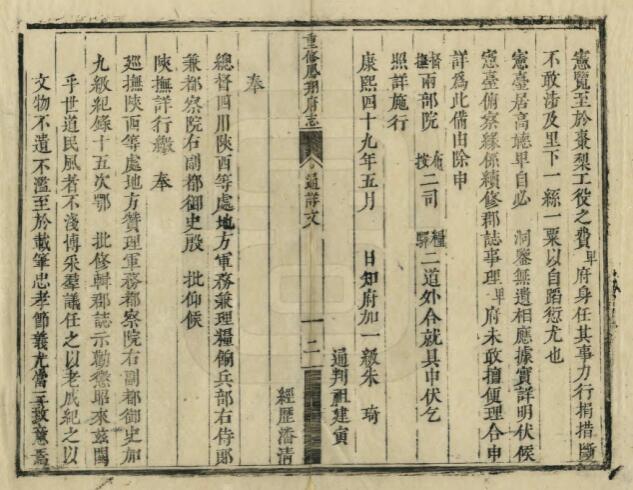 憲覽至於棗梨工役之費卑府身任其事力行捐措斷
不敢涉及里下一絲一粟以自蹈愆尤也
憲臺居高聽卑自必　洞鑒無遺相應據實詳明伏候
憲臺俯察緣係續修郡誌事理卑府未敢擅便理合申
詳爲此備由除申
督撫兩部院　布按二司　糧驛二道外合就具申伏乞
照詳施行
康熙四十九年五月　日知府加一級朱　琦
通判祖建寅
經歷潘清
重修鳳翔府志　通詳文　一　二
奉
總督四川陝西等處地方軍務兼理糧餉兵部右侍郎
兼都察院右副都御史殷　批仰候
陝撫詳行繳　奉
廵撫陝西等處地方贊理軍務都察院右副都御史加
九級紀錄十五次鄂　批修輯郡誌示勸懲昭來茲關
乎世道民風者不淺博采羣議任之以老成紀之以
文物不遺不濫至於載筆忠孝節義尤當三致意焉